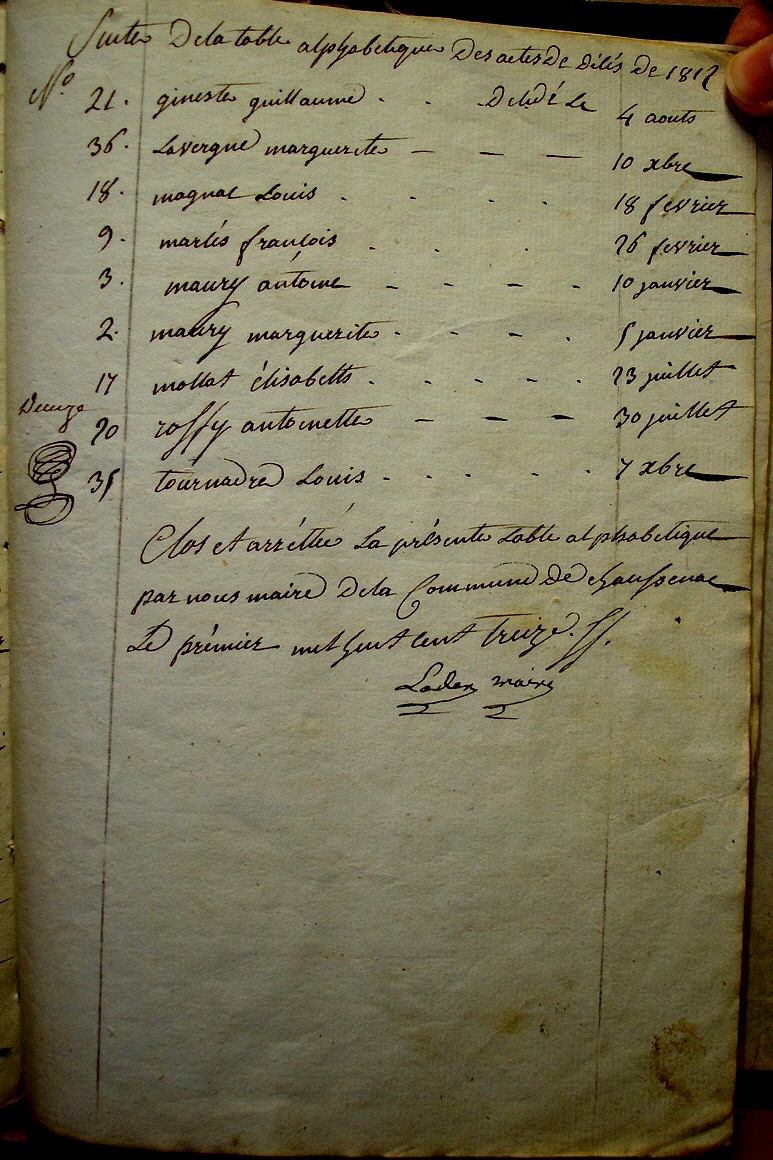 Suite De la table alphabetique Des actes De décés de 1812
No
21. gineste guillaume . . Décédé Le 4 aouts
36. Lavergne marguerite — — — 10 xbre
18. magnac Louis . . . . 18 fevrier
9. marlés francois . . . 26 fevrier
3. maury antoine - - - - 10 janvier
2. maury marguerite . . - . 5 janvier
17 mollat élisabeth . . . . . 23 juillet
20 roffy antoinette — — — 30 juillet
35 tournadre Louis - . . . . 7 xbre
Clos et arréttée La présente table alphabetique
par nous maire De la Commune De chaussenac
Le prémier mil huit cent treize.
maire